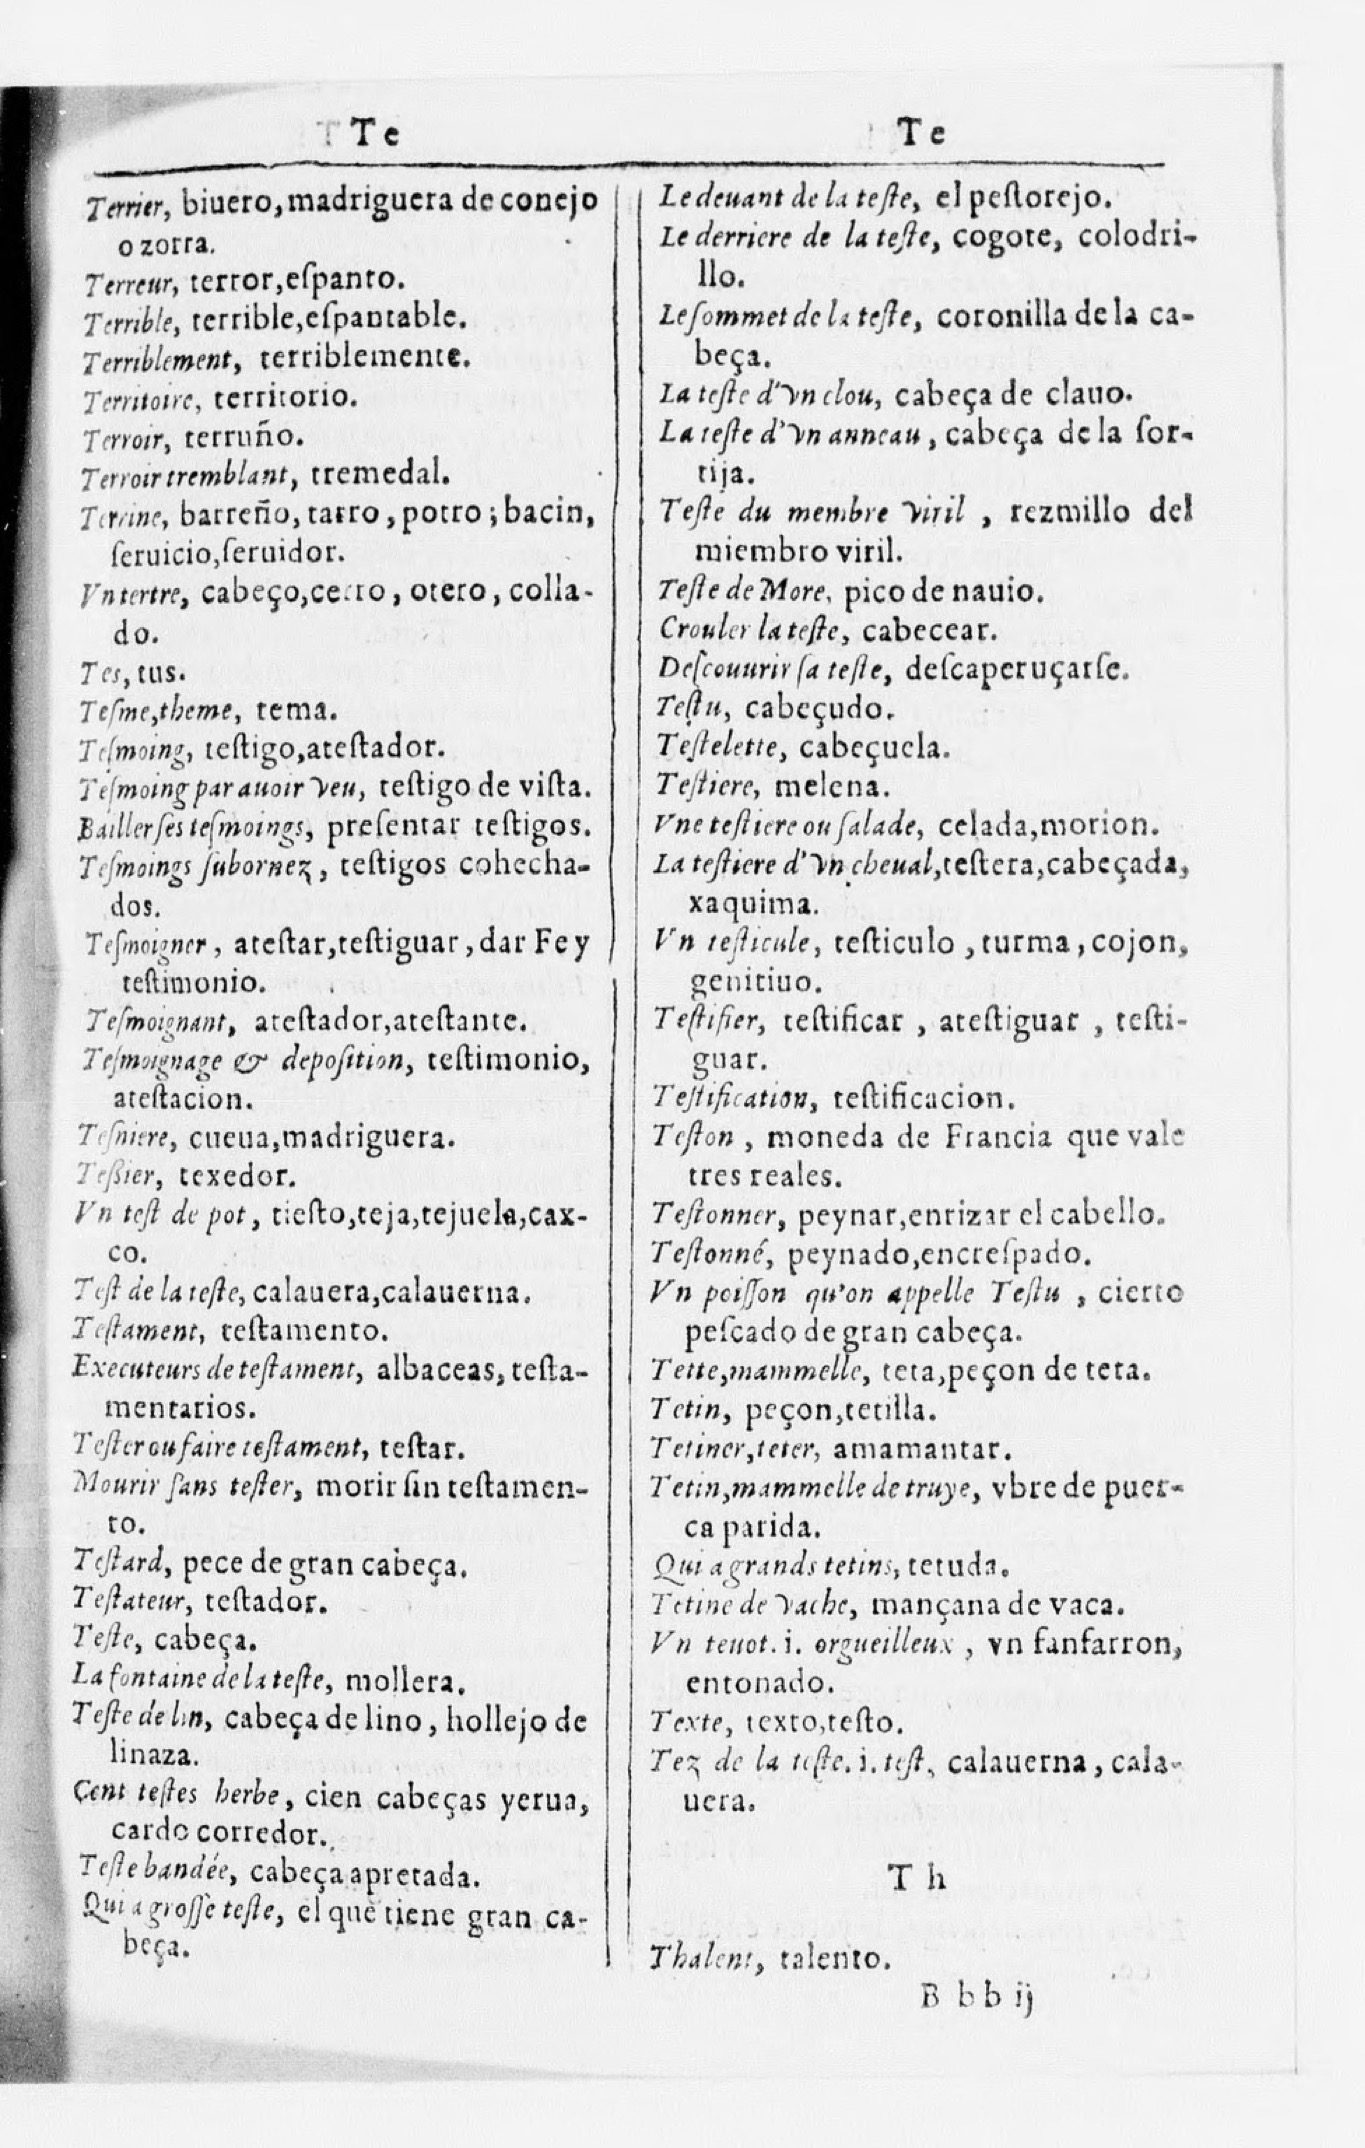 Te
Te
Terrier, biuero, madriguera de conejo
o zorra.
Terreur, terror, eſpanto.
Terrible, terrible, eſpantable.
Terriblement, terriblemente.
Territoire, territorio.
Terroir, terruño.
Terroir tremblant, tremedal.
Terrine, barreño, tarro, potro; bacin,
ſeruicio, ſeruidor.
Vn tertre, cabeço, cerro, otero, colla-
do.
Tes, tus.
Teſme, theme, tema.
Teſmoing, teſtigo, ateſtador.
Teſmoing par auoir veu, teſtigo de viſta.
Bailler ſes teſmoings, preſentar teſtigos.
Teſmoings ſubornez, teſtigos cohecha-
dos.
Teſmoigner, ateſtar, teſtiguar, dar Fe y
teſtimonio.
Teſmoignant, ateſtador, ateſtante.
Teſmoignage & depoſition, teſtimonio,
ateſtacion.
Teſniere, cueua, madriguera.
Teßier, texedor.
Vn teſt de pot, tieſto, teja, tejuela, cax-
co.
Teſt de la teſte, calauera, calauerna.
Teſtament, teſtamento.
Executeurs de teſtament, albaceas, teſta-
mentarios.
Teſter ou faire teſtament, teſtar.
Mourir ſans teſter, morir ſin teſtamen-
to.
Teſtard, pece de gran cabeça.
Teſtateur, teſtador.
Teſte, cabeça.
La fontaine de la teſte, mollera.
Teſte de lin, cabeça de lino, hollejo de
linaza.
Cent teſtes herbe, cien cabeças yerua,
cardo corredor.
Teſte bandée, cabeça apretada.
Qui a groſſe teſte, el que tiene gran ca-
beça.
Le deuant de la teſte, el peſtorejo.
Le derriere de la teſte, cogote, colodri-
llo.
Le ſommet de la teſte, coronilla de la ca-
beça.
La teſte d'vn clou, cabeça de clauo.
La teſte d'vn anneau, cabeça de la ſor-
tija.
Teſte du membre viril, rezmillo del
miembro viril.
Teſte de More, pico de nauio.
Crouler la teſte, cabecear.
Deſcouurir ſa teſte, deſcaperuçarſe.
Teſtu, cabeçudo.
Teſtelette, cabeçuela.
Teſtiere, melena.
Vne teſtiere ou ſalade, celada, morion.
La teſtiere d'vn cheual, teſtera, cabeçada,
xaquima.
Vn teſticule, teſticulo, turma, cojon,
genitiuo.
Teſtifier, teſtificar, ateſtiguar, teſti-
guar.
Teſtification, teſtificacion.
Teſton, moneda de Francia que vale
tres reales.
Teſtonner, peynar, enrizar el cabello.
Teſtonné, peynado, encreſpado.
Vn poiſſon qu'on appelle Teſtu, cierto
peſcado de gran cabeça.
Tette, mammelle, teta, peçon de teta.
Tetin, peçon, tetilla.
Tetiner, teter, amamantar.
Tetin, mammelle de truye, vbre de puer-
ca parida.
Qui a grands tetins, tetuda.
Tetine de vache, mançana de vaca.
Vn teuot. i. orgueilleux, vn fanfarron,
entonado.
Texte, texto, teſto.
Tez de la teſte. i. teſt, calauerna, cala-
uera.
Th
Thalent, talento.
B b b ij